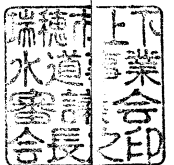 瑞穂市上下
水道事業
審議会
会長之印